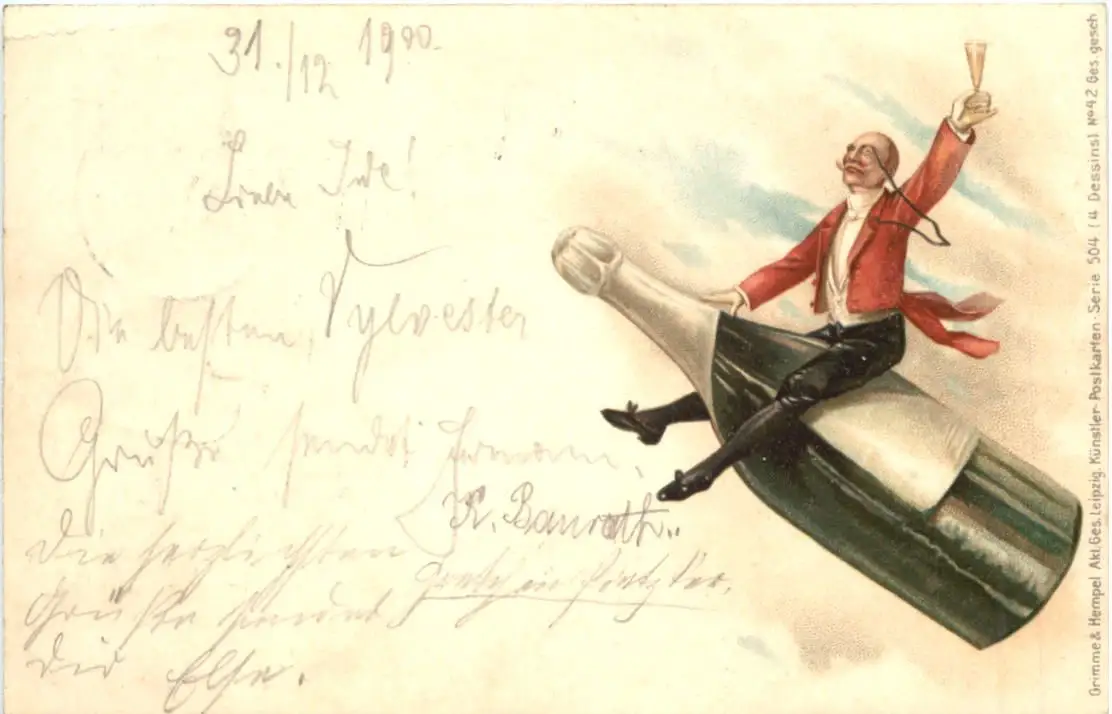 31./12 1900.
Liebe Ide!
Die besten Sylvester
Grüße sendet
R. Banrath..
Die herzlichsten
Grüße sendet
Dir Else.
Grimme & Hempel Akt.Ges. Leipzig. Künstler-Postkarten · Serie 504 (4 Dessins) No 42 Ges. gesch